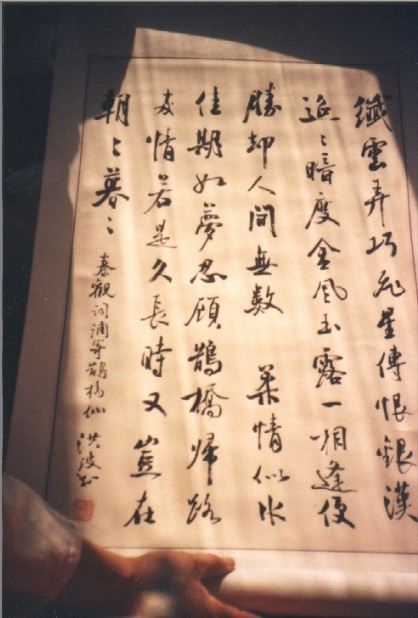 纖雲弄巧飛星傳恨銀漢
迢〻暗度金風玉露一相逢便
勝却人間無數 柔情似水
佳期如夢忍顧鵲橋歸路
兩情若是久長時又豈在
朝〻暮〻
秦觀詞調寄鵲橋仙 洪波书